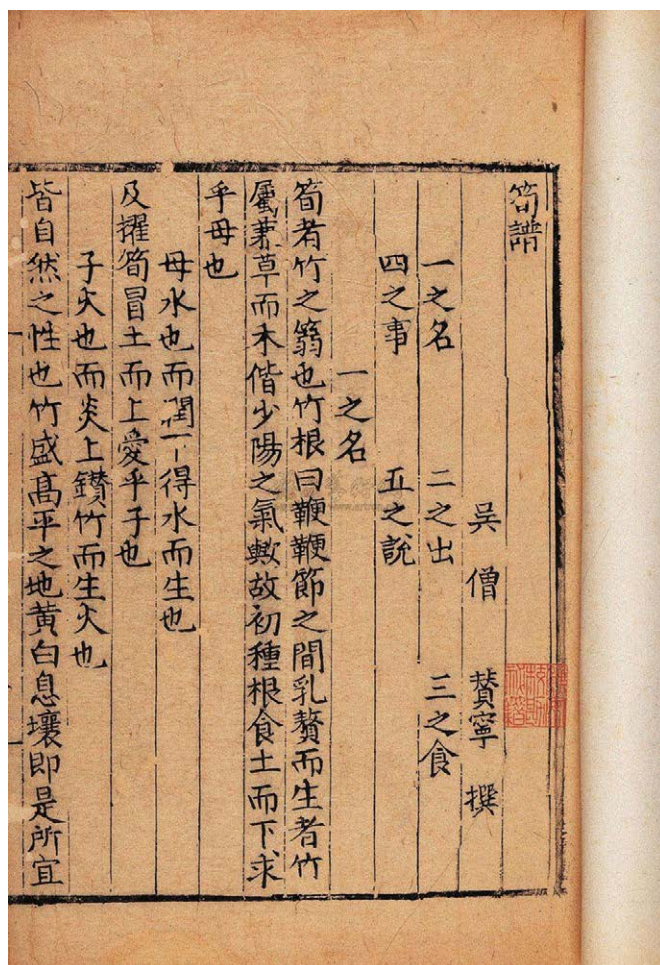 筍譜
吳僧 賛寧 撰
一之名 二之出 三之食
四之事 五之說
一之名
筍者竹之篛也竹根曰鞭鞭節之間乳贅而生者竹
屬兼草而木偕少陽之氣歟故初種根食土而下求
乎母也
母水也而潤下得水而生也
及擢筍冒土而上愛乎子也
子火也而炎上鑚竹而生火也
皆自然之性也竹盛髙平之地黄白息壤即是所宜